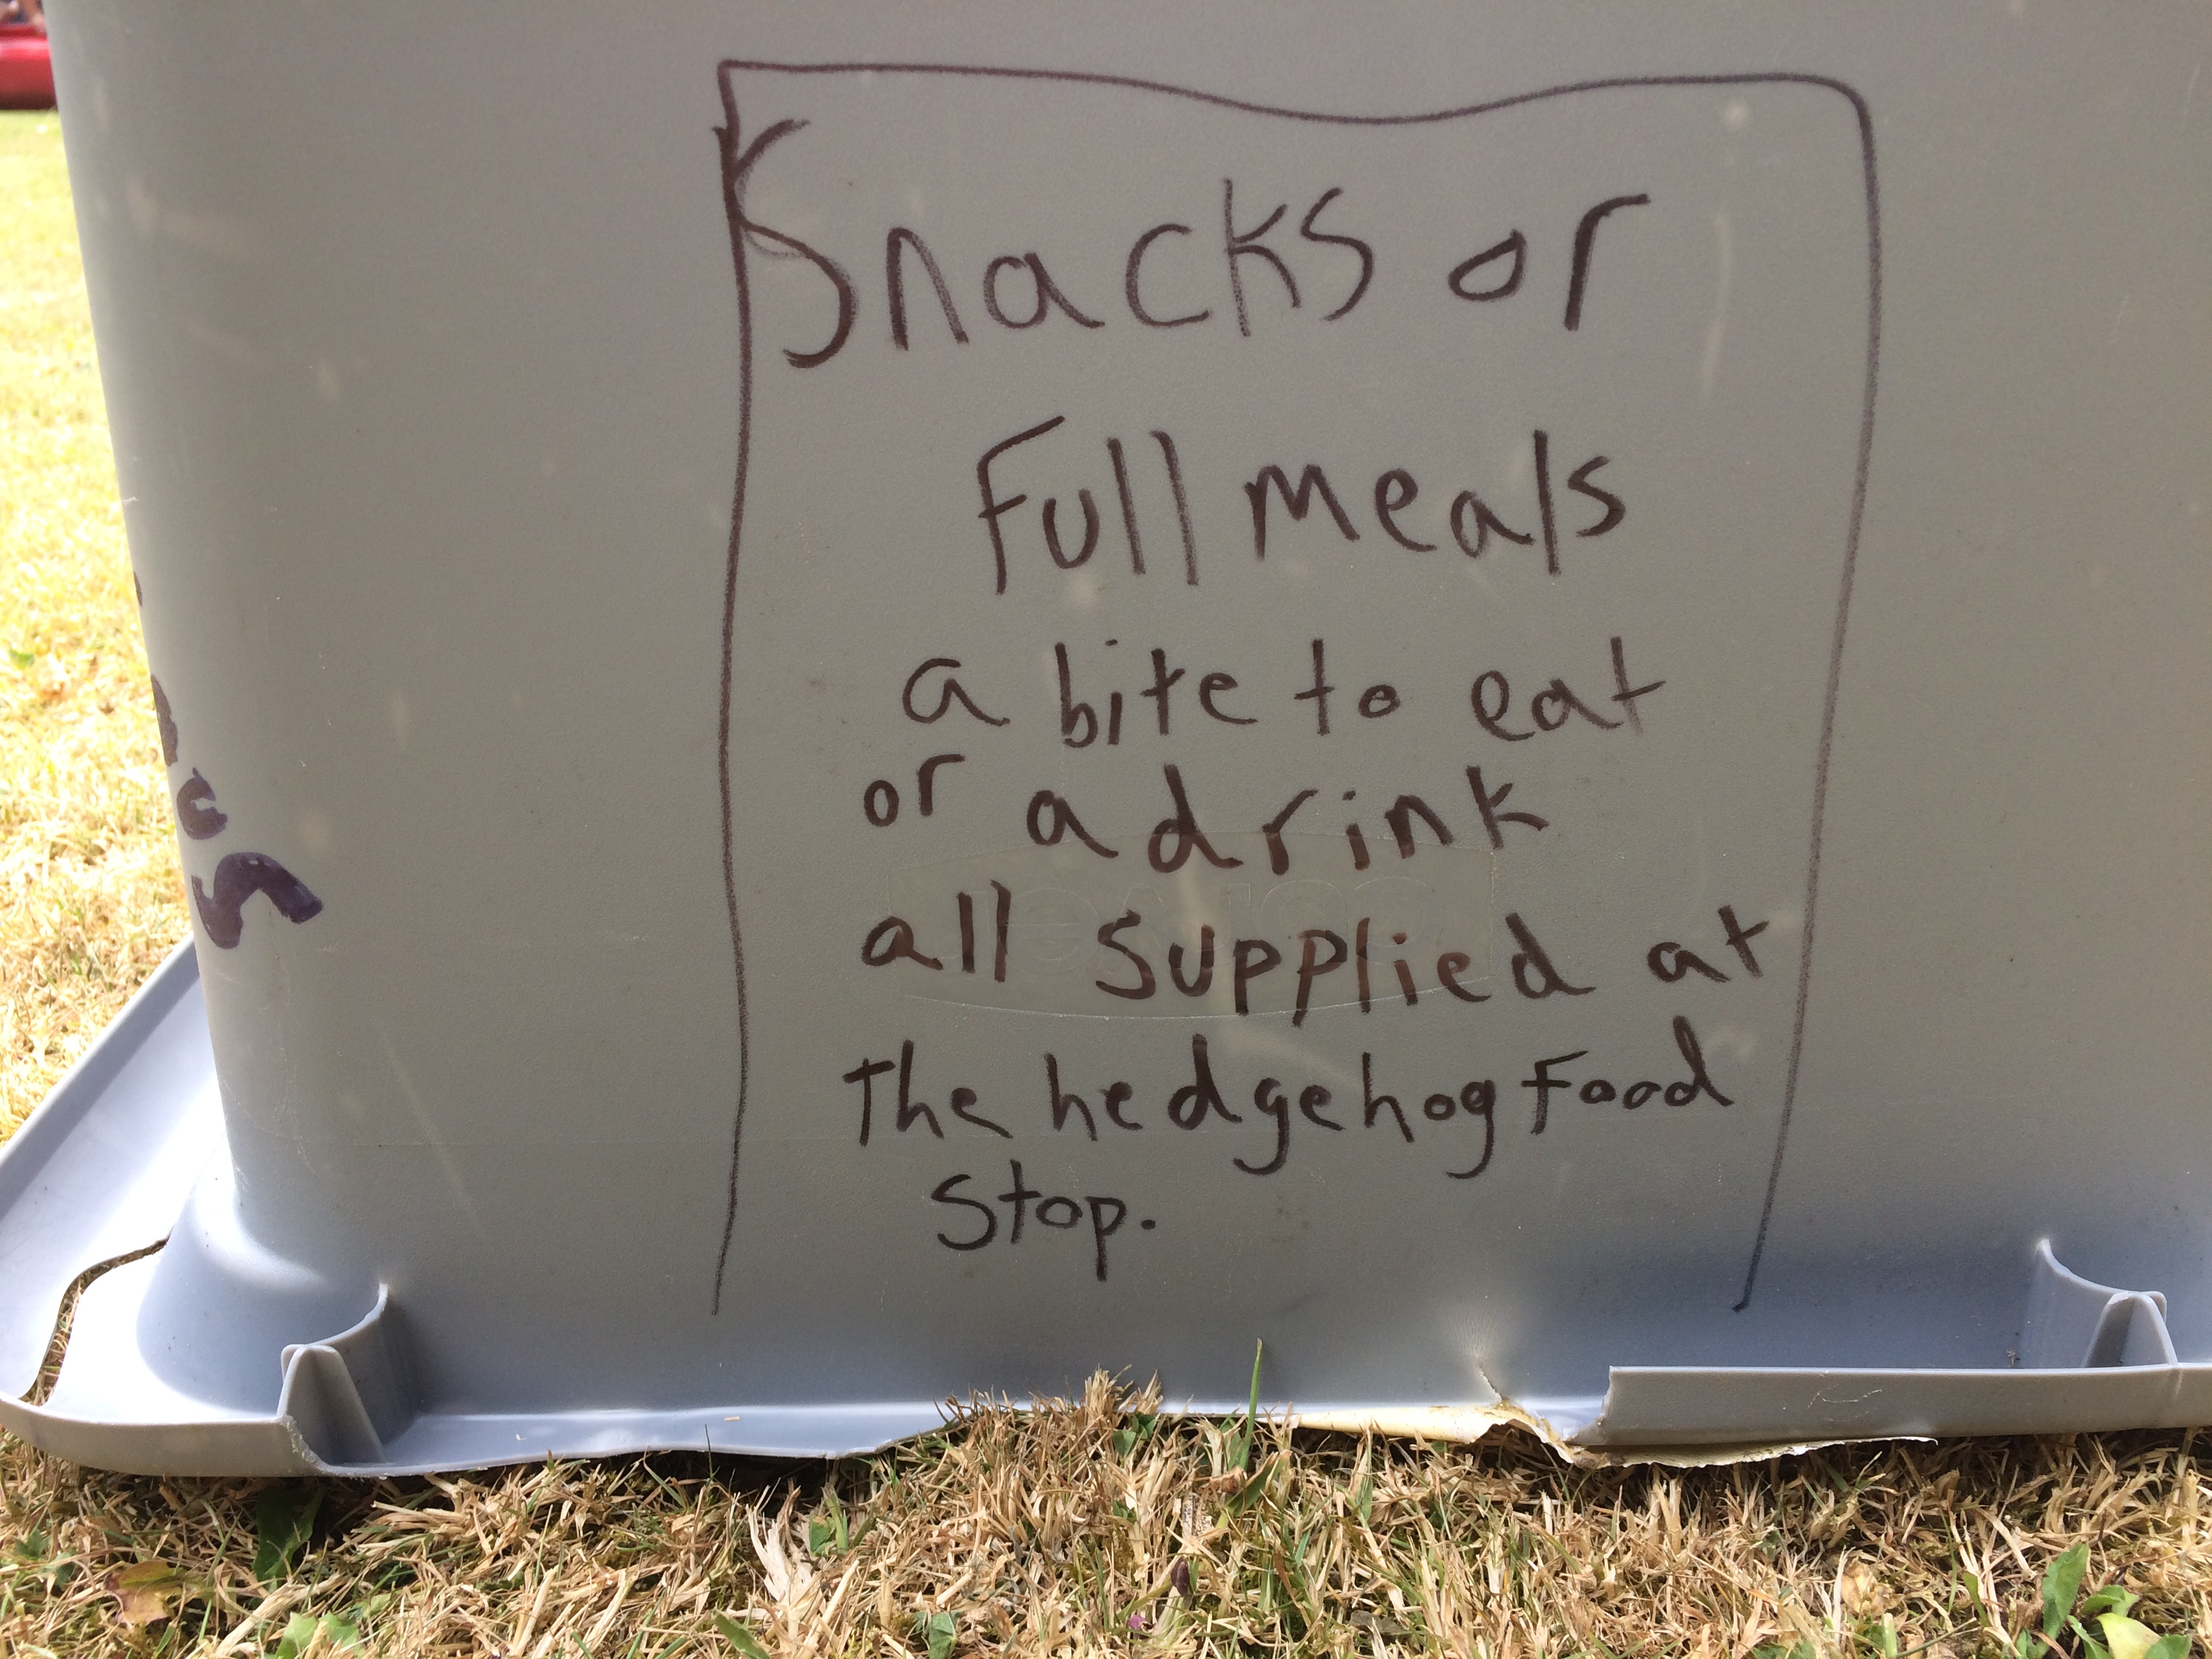 Snacks or
Full meals
a bite to eat
or a drink
all supplied at
the hedgehog food
stop.